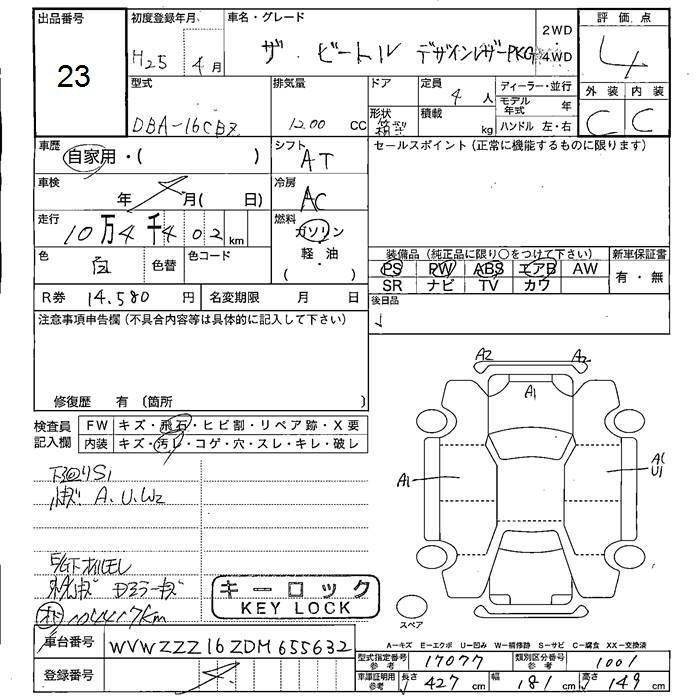 出品番号
23
初度登録年月
H25 4月
車名・グレード
ザ ビートル デザインレザーPKG
2WD
4WD
評価点
4
外装 内装
C C
型式
DBA-16CBZ
排気量
1200 CC
ドア
形状
定員
4人
積載
kg
ディーラー・並行
モデル年式 年
ハンドル 左・右
車歴
自家用・( )
シフト
AT
セールスポイント(正常に機能するものに限ります)
車検
年 月( 日)
冷房
AC
走行
10万4千402km
燃料
ガソリン
軽・油
( )
色
白
色替
色コード
装備品(純正品に限り○をつけて下さい)
PS PW ABS エアB AW
SR ナビ TV カワ
新車保証書
有・無
R券 14,580円
名変期限 月 日
後日品
注意事項申告欄(不具合内容等は具体的に記入して下さい)
修復歴 有 (箇所 )
検査員記入欄
FW キズ・飛石・ヒビ割・リペア跡・X要
内装 キズ・汚レ・コゲ・穴・スレ・キレ・破レ
A2 A2
A1
A1
A1
U1
下回りS1
小キズ A、U、W2
E/G下オイルモレ
104417km
キーロック
KEY LOCK
スペア
A－キズ E－エクボ U－凹み W－補修跡 S－サビ C－腐食 XX－交換済
車台番号 WVWZZZ16ZDM655632
型式指定番号 参考 17077
類別区分番号 参考 1001
登録番号
車庫証明用 参考 長さ 427cm 幅 181cm 高さ 149cm